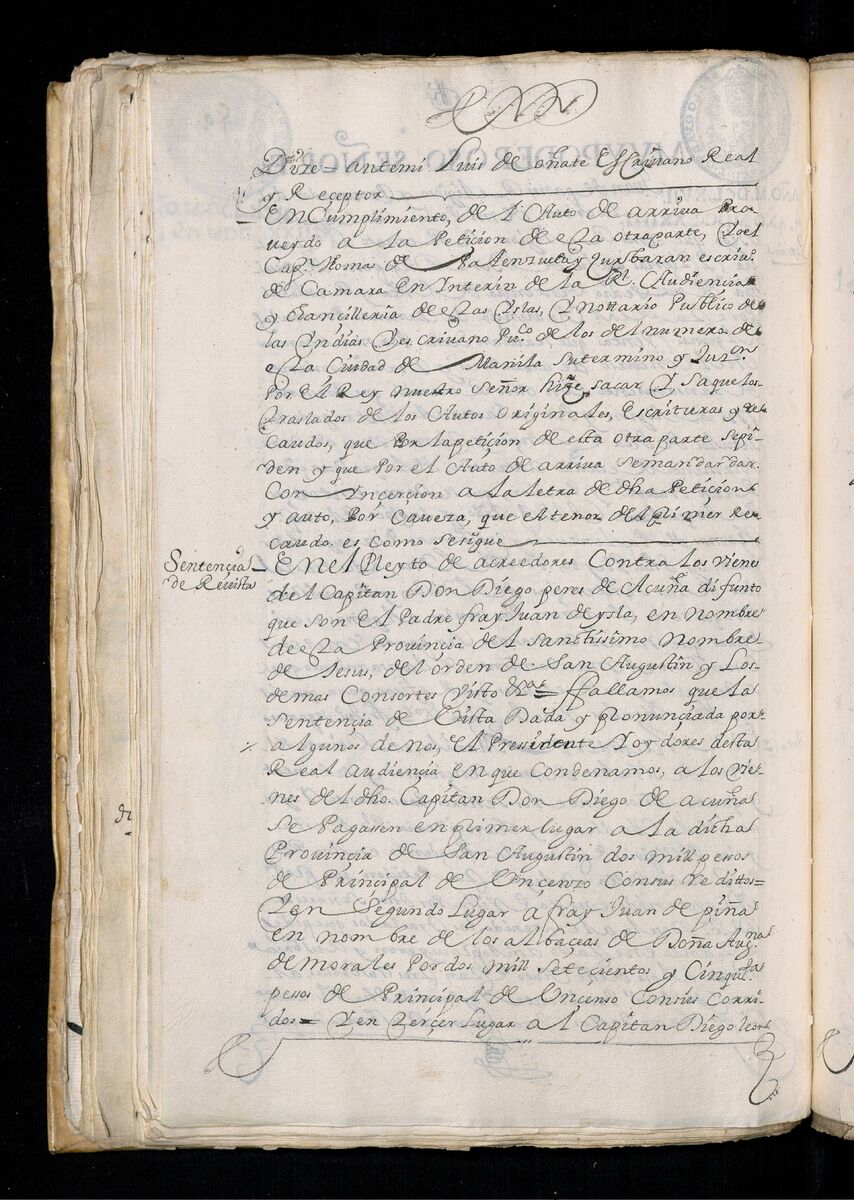 Doze = antemi Luis de oñate Escriuano Real
y Receptor
En Cumplimiento, del Auto de arriua Pro-
ueydo a la Peticion de esta otra parte, Yo el
Cap.n thomas de Palenzuela y Zurbaran escriu.o
de Camara En Interin de la R.l Audiencia
y chancilleria de estas Yslas, Y nottario Publico de
las Yndias Y escriuano Pu.co de los del numero de
esta Ciudad de Manila Sutermino y Jur.on
Por El Rey nuestro Señor hize sacar, Y Saque los
traslados de los Autos originales, Escrituras y re-
Caudos, que Por la peticion de esta otra parte Sepi-
den y que Por el Auto de arriua Semandan dar.
Con Ynçerçion a la letra de dha Peticion
y auto, Por Caueza, que el tenor del primer Re-
caudo es como Sesigue
Sentençia
de Reuista
En el Pleyto de acreedores Contra los vienes
del Capitan Don Diego peres de Acuña difunto
que son El Padre fray Juan de ysla, en nombre
de esta Prouinçia del Sanctissimo Nombre
de Jesus, del orden de San Augustin y Los
demas Consortes Visto &.a = ffallamos que la
Sentençia de Vista Dada y pronunçiada por
algunos de nos, El Presidente Y oydores desta
Real audiençia En que Condenamos, a los vie-
nes del dho. Capitan Don Diego de acuña
Se Pagasen en primer lugar a la dicha
Prouinçia de San Augustin dos mill pesos
de Prinçipal de Vnçenzo Consus redittos =
Y en Segundo Lugar a fray Juan de piña
en nombre de los albaçeas de Doña Aug.na
de morales Por dos mill Seteçientos y Cinqu.ta
pesos de Prinçipal de Vnçenso Consus Corri-
dos = Y en terçer Lugar al Capitan Diego leon